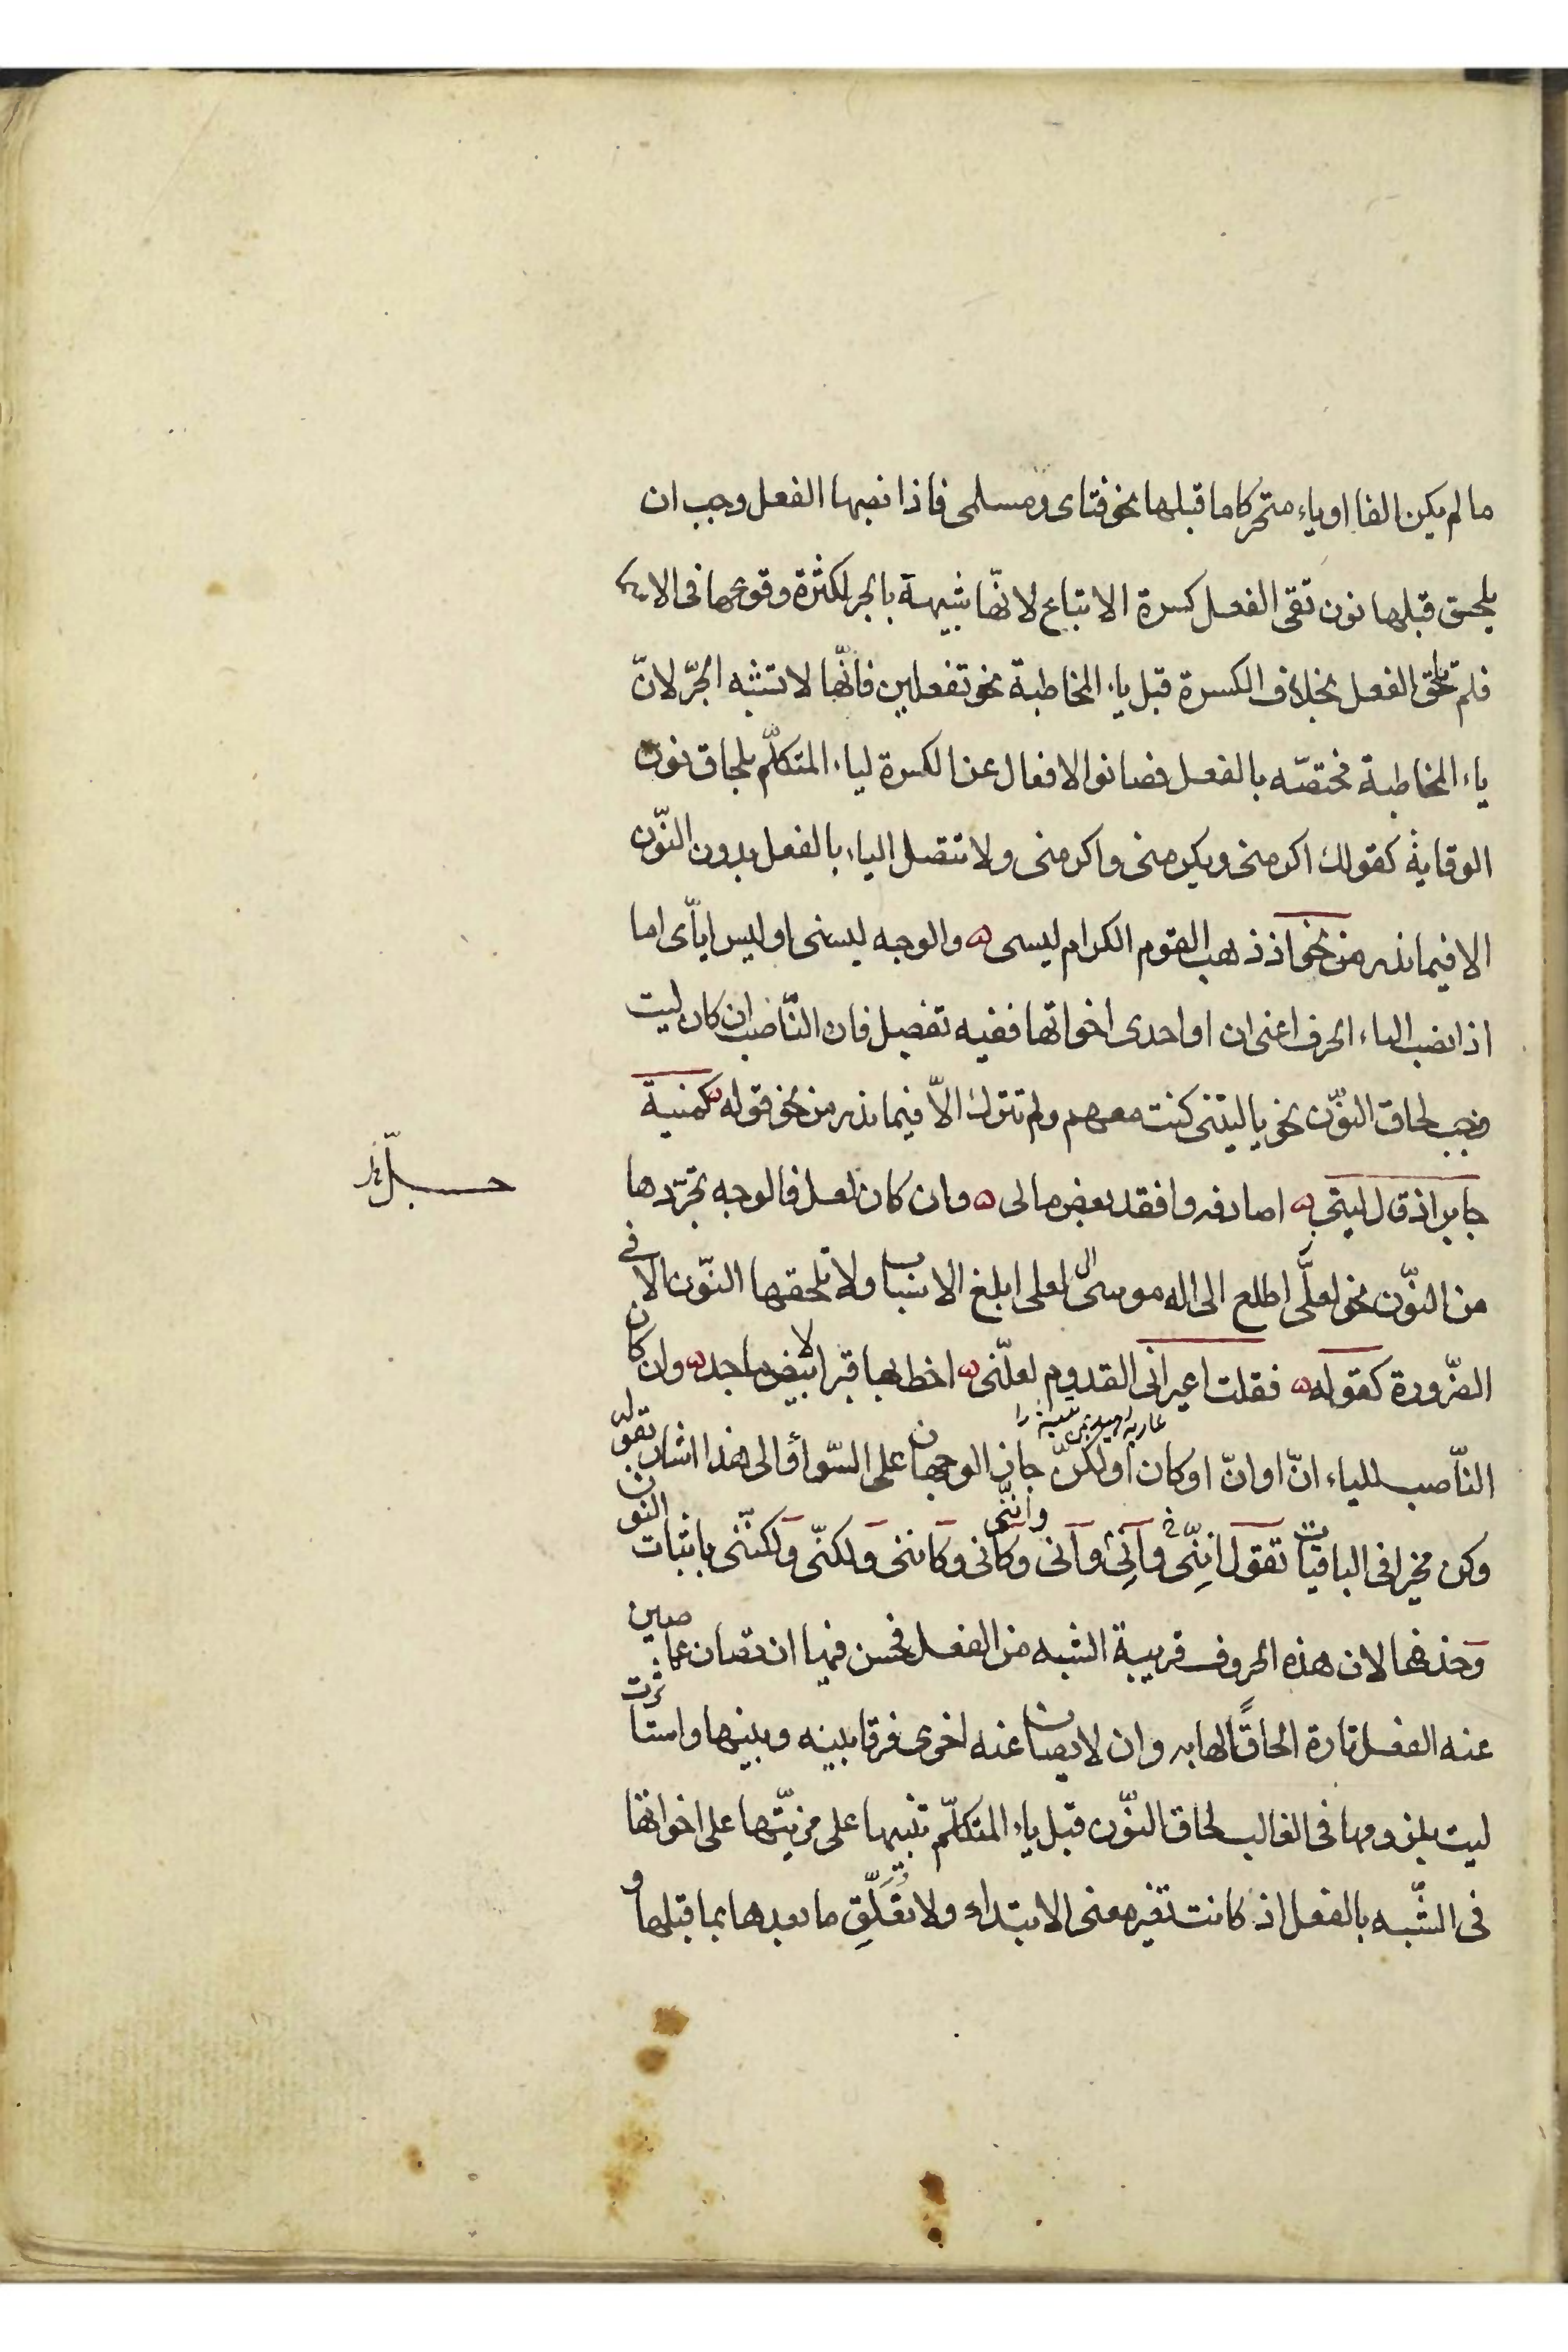 ما لم يكن الفا او ياء متحركا ما قبلها نحو فتاى ومسلمى فاذا نصبها الفعل وجب ان
يلحق قبلها نون تقى الفعل كسرة الاتباع لانّها شبيهة بالجر لكثرة وقوعها فى الاسماء
فلم تلحق الفعل بخلاف الكسرة قبل ياء المخاطبة نحو تفعلين فانّها لا تشبه الجرّ لانّ
ياء المخاطبة مختصّه بالفعل فصانوا الافعال عن الكسرة لياء المتكلّم بلحاق نون
الوقاية كقولك اكرمنى ويكرمنى واكرمنى ولا تتصل الياء بالفعل بدون النّون
الا فيما ندر من نحو اذ ذهب القوم الكرام ليسى ه والوجه ليسنى او ليس ايّاى اما
اذا نصب الياء الحرف اعنى ان او احدى اخواتها ففيه تفصيل فان النّاصب ان كان ليت
وجب لحاق النّون نحو يا ليتنى كنت معهم ولم تترك الاّ فيما ندر من نحو قوله ه كمنية
جابر اذ قال ليتى ه اصادفه وافقد بعض مالى ه وان كان لعل فالوجه تجرّدها
من النّون نحو لعلّى اطلع الى اله موسى لعلى ابلغ الاسباب ولا تلحقها النّون الا فى
الضّرورة كقوله ه فقلت اعيرانى القدوم لعلّنى ه اخط بها قبرا لابيض ماجد ه وان كان
النّاصب للياء انّ او انّ او كان او لكنّ جاز الوجهان على السّواء والى هذا اشار بقوله
وكن مخيرا فى الباقيات تقول انِنّى وانِّى وانى واننّى وكانى وكاننى ولكنّى ولكننّى باثبات النون
وحذفها لان هذه الحروف قريبة الشبه من الفعل فحسن فيها ان تصان عما صين
عنه الفعل تارة الحاقًا لها به وان لا يصان عنه اخرى فرقا بينه وبينها واستاثرت
ليت بلزومها فى الغالب لحاق النّون قبل ياء المتكلّم تنبيها على مزيّتها على اخواتها
فى الشّبه بالفعل اذ كانت تغير معنى الابتداء ولا تعلّق ما بعدها بما قبلها و